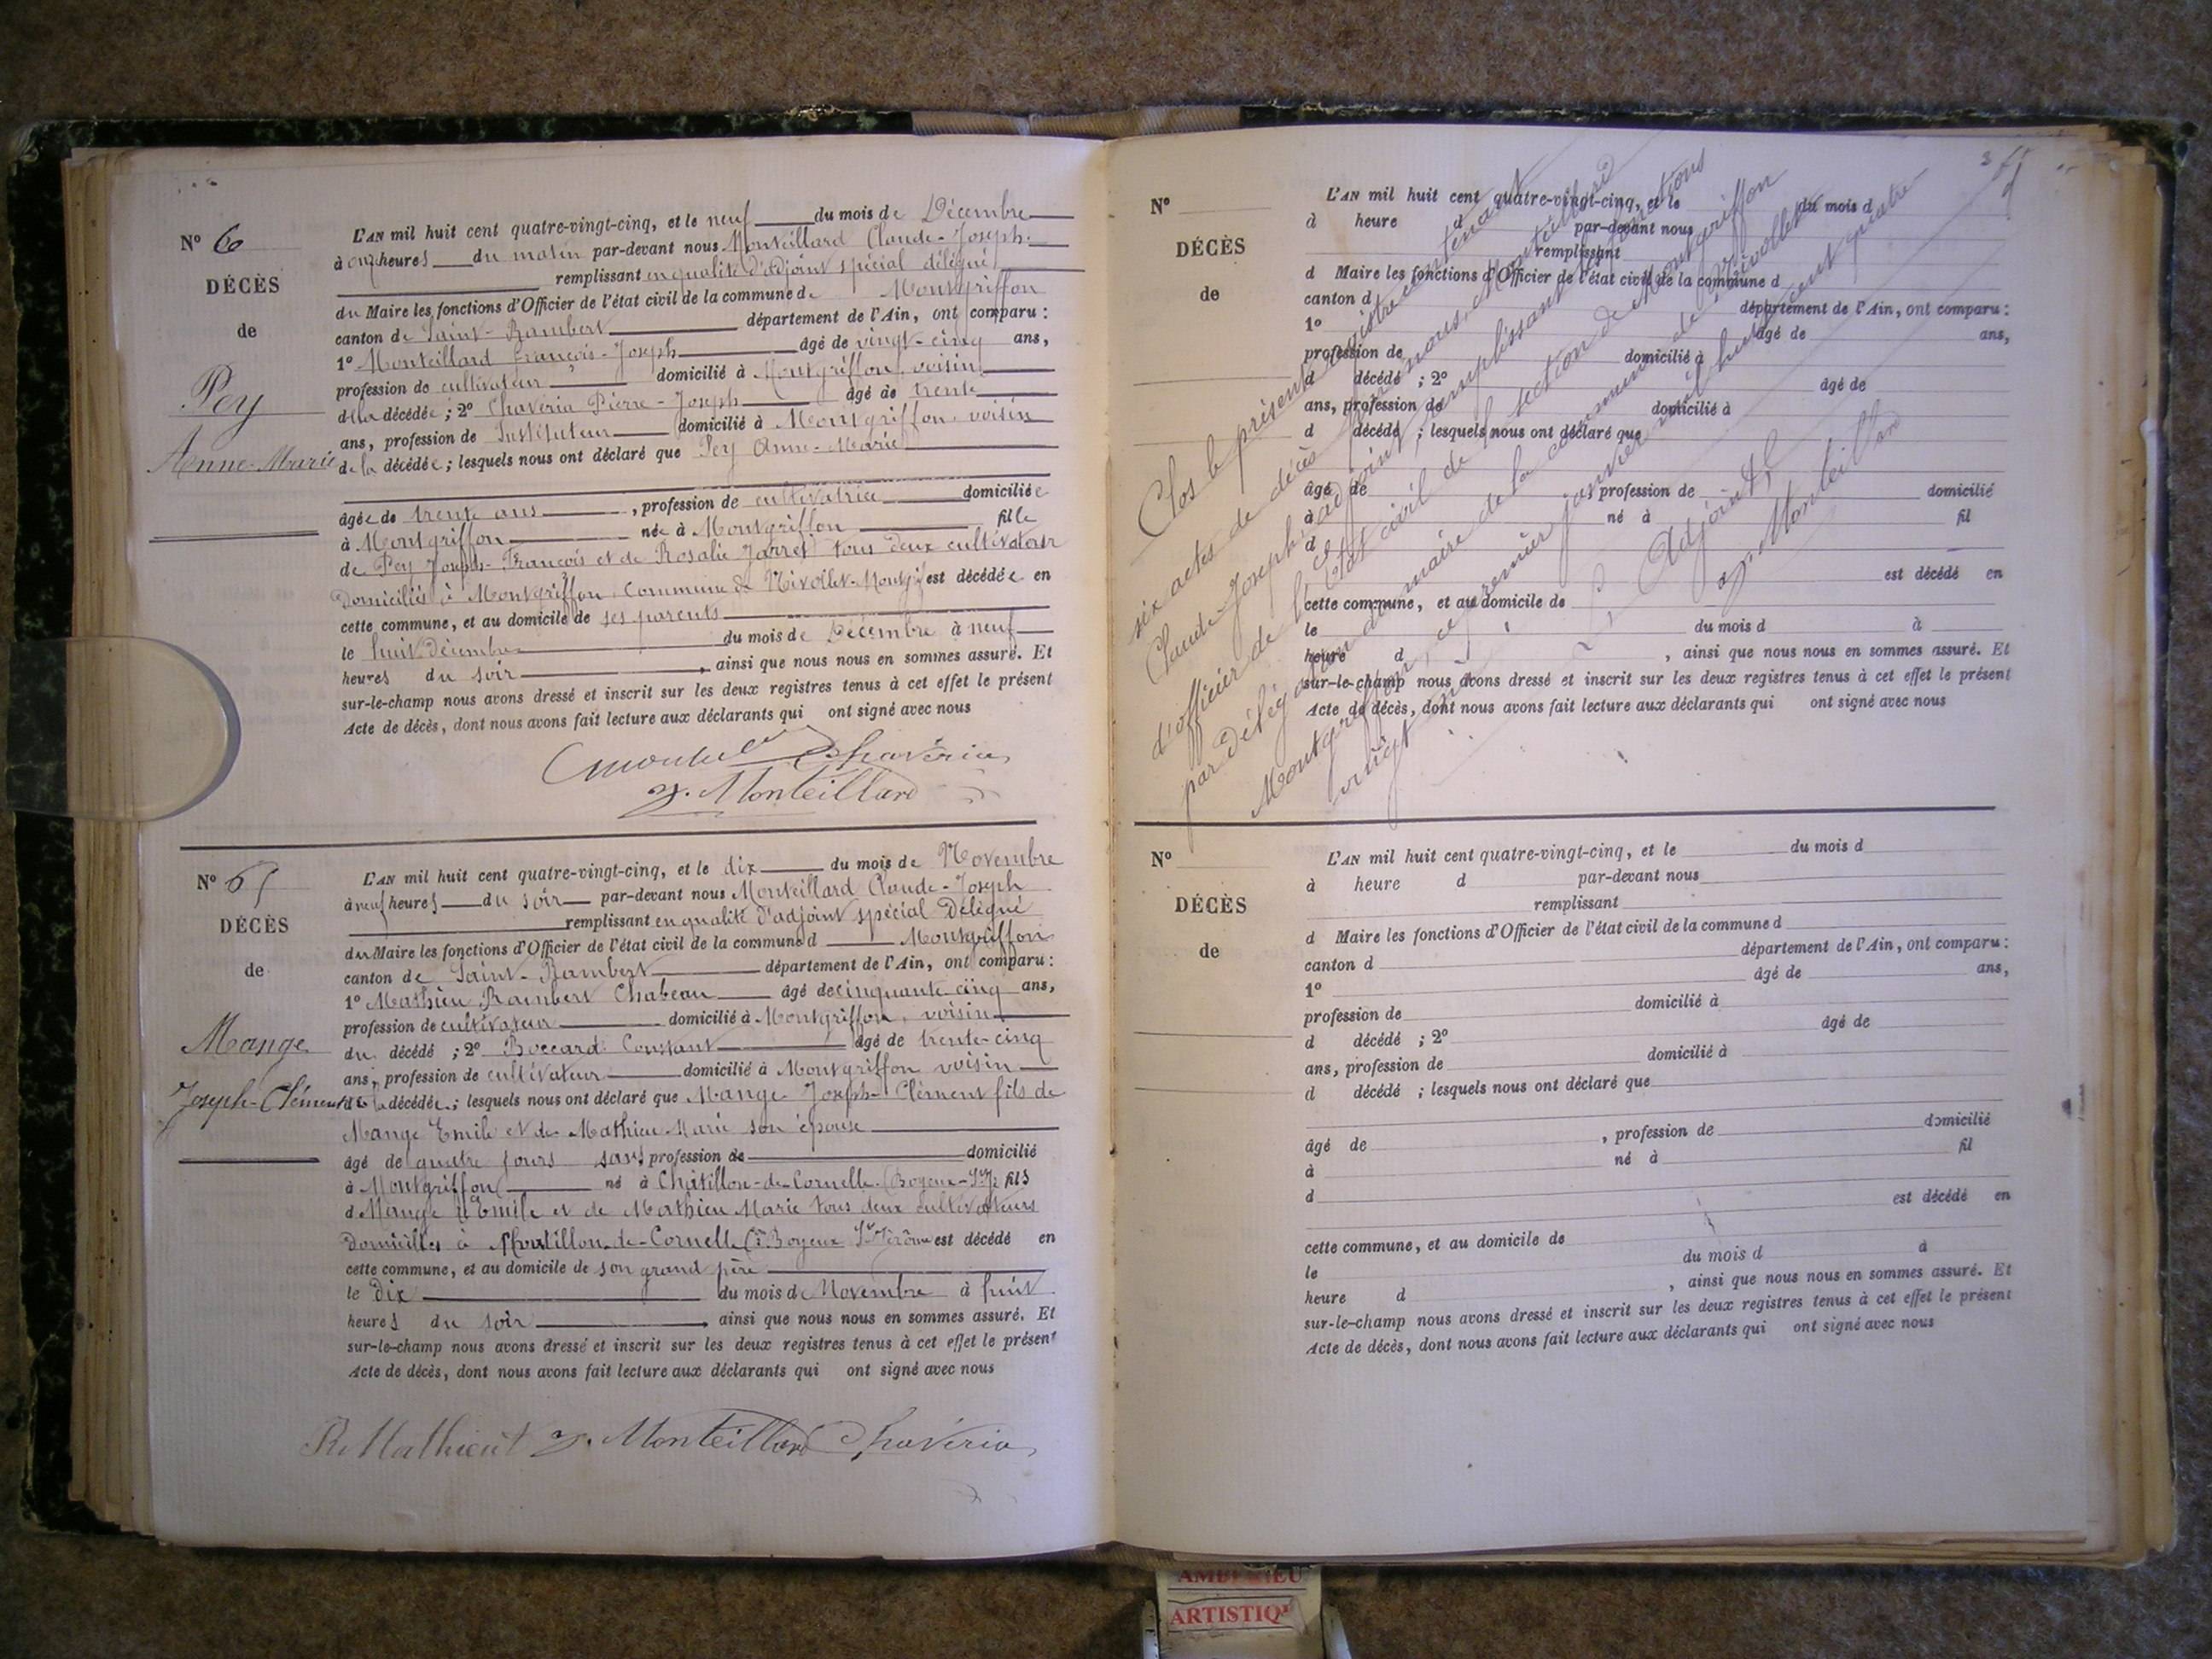 N° 6
DÉCÈS
de
Pey
Anne-Marie
L'AN mil huit cent quatre-vingt-cinq, et le neuf du mois de Décembre
à onze heures du matin par-devant nous Monteillard Claude-Joseph
remplissant en qualité d'adjoint spécial délégué
du Maire les fonctions d'Officier de l'état civil de la commune de Montgriffon
canton de Saint-Rambert département de l'Ain, ont comparu :
1° Monteillard François-Joseph âgé de vingt-cinq ans,
profession de cultivateur domicilié à Montgriffon, voisin
de la décédée ; 2° Chavéria Pierre-Joseph âgé de trente
ans, profession de Instituteur domicilié à Montgriffon voisin
de la décédée ; lesquels nous ont déclaré que Pey Anne-Marie
âgée de trente ans, profession de cultivatrice domiciliée
à Montgriffon née à Montgriffon fille
de Pey Joseph-François et de Rosalie Jarret tous deux cultivateurs
domiciliés à Montgriffon, Commune de Nivollet-Montgf est décédée en
cette commune, et au domicile de ses parents
le huit Décembre du mois de Décembre à neuf
heures du soir, ainsi que nous nous en sommes assuré. Et
sur-le-champ nous avons dressé et inscrit sur les deux registres tenus à cet effet le présent
Acte de décès, dont nous avons fait lecture aux déclarants qui ont signé avec nous
Chavéria
Monteillard
N°
DÉCÈS
de
Mange
Joseph-Clément
L'AN mil huit cent quatre-vingt-cinq, et le dix du mois de Novembre
à neuf heures du soir par-devant nous Monteillard Claude-Joseph
remplissant en qualité d'adjoint spécial Délégué
du Maire les fonctions d'Officier de l'état civil de la commune d Montgriffon
canton de Saint-Rambert département de l'Ain, ont comparu :
1° Mathieu Rambert Chabeau âgé de cinquante cinq ans,
profession de cultivateur domicilié à Montgriffon, voisin
du décédé ; 2° Boccard Constant âgé de trente-cinq
ans, profession de cultivateur domicilié à Montgriffon voisin
de la décédée ; lesquels nous ont déclaré que Mange Joseph-Clément fils de
Mange Emile et de Mathieu Marie son épouse
âgé de quatre jours sans profession de domicilié
à Montgriffon né à Châtillon-de-Cornelle (Boyeux-St-J) fils
d Mange Emile et de Mathieu Marie tous deux cultivateurs
domiciliés à Chatillon-de-Cornelle (Boyeux St Jérôme est décédé en
cette commune, et au domicile de son grand père
le Dix du mois de Novembre à huit
heures du soir, ainsi que nous nous en sommes assuré. Et
sur-le-champ nous avons dressé et inscrit sur les deux registres tenus à cet effet le présent
Acte de décès, dont nous avons fait lecture aux déclarants qui ont signé avec nous
R. Mathieu Monteillard Chavéria
N°
DÉCÈS
de
L'AN mil huit cent quatre-vingt-cinq, et le du mois d
à heure d par-devant nous
remplissant
d Maire les fonctions d'Officier de l'état civil de la commune d
canton d département de l'Ain, ont comparu :
1° âgé de ans,
profession de domicilié à
d décédé ; 2° âgé de
ans, profession de domicilié à
d décédé ; lesquels nous ont déclaré que
âgé de , profession de domicilié
à né à fil
d
est décédé en
cette commune, et au domicile de
le du mois d à
heure d , ainsi que nous nous en sommes assuré. Et
sur-le-champ nous avons dressé et inscrit sur les deux registres tenus à cet effet le présent
Acte de décès, dont nous avons fait lecture aux déclarants qui ont signé avec nous
Clos le présent registre contenant
six actes de décès par nous, Monteillard
Claude-Joseph, adjoint, remplissant les fonctions
d'officier de l'état civil de la section de Montgriffon
par délégation du maire de la commune de Nivollet
Montgriffon, ce premier janvier mil huit cent quatre
vingt
L'Adjoint Sl
Monteillard
N°
DÉCÈS
de
L'AN mil huit cent quatre-vingt-cinq, et le du mois d
à heure d par-devant nous
remplissant
d Maire les fonctions d'Officier de l'état civil de la commune d
canton d département de l'Ain, ont comparu :
1° âgé de ans,
profession de domicilié à
d décédé ; 2° âgé de
ans, profession de domicilié à
d décédé ; lesquels nous ont déclaré que
âgé de , profession de domicilié
à né à fil
d
est décédé en
cette commune, et au domicile de
le du mois d à
heure d , ainsi que nous nous en sommes assuré. Et
sur-le-champ nous avons dressé et inscrit sur les deux registres tenus à cet effet le présent
Acte de décès, dont nous avons fait lecture aux déclarants qui ont signé avec nous
ARTISTIQ